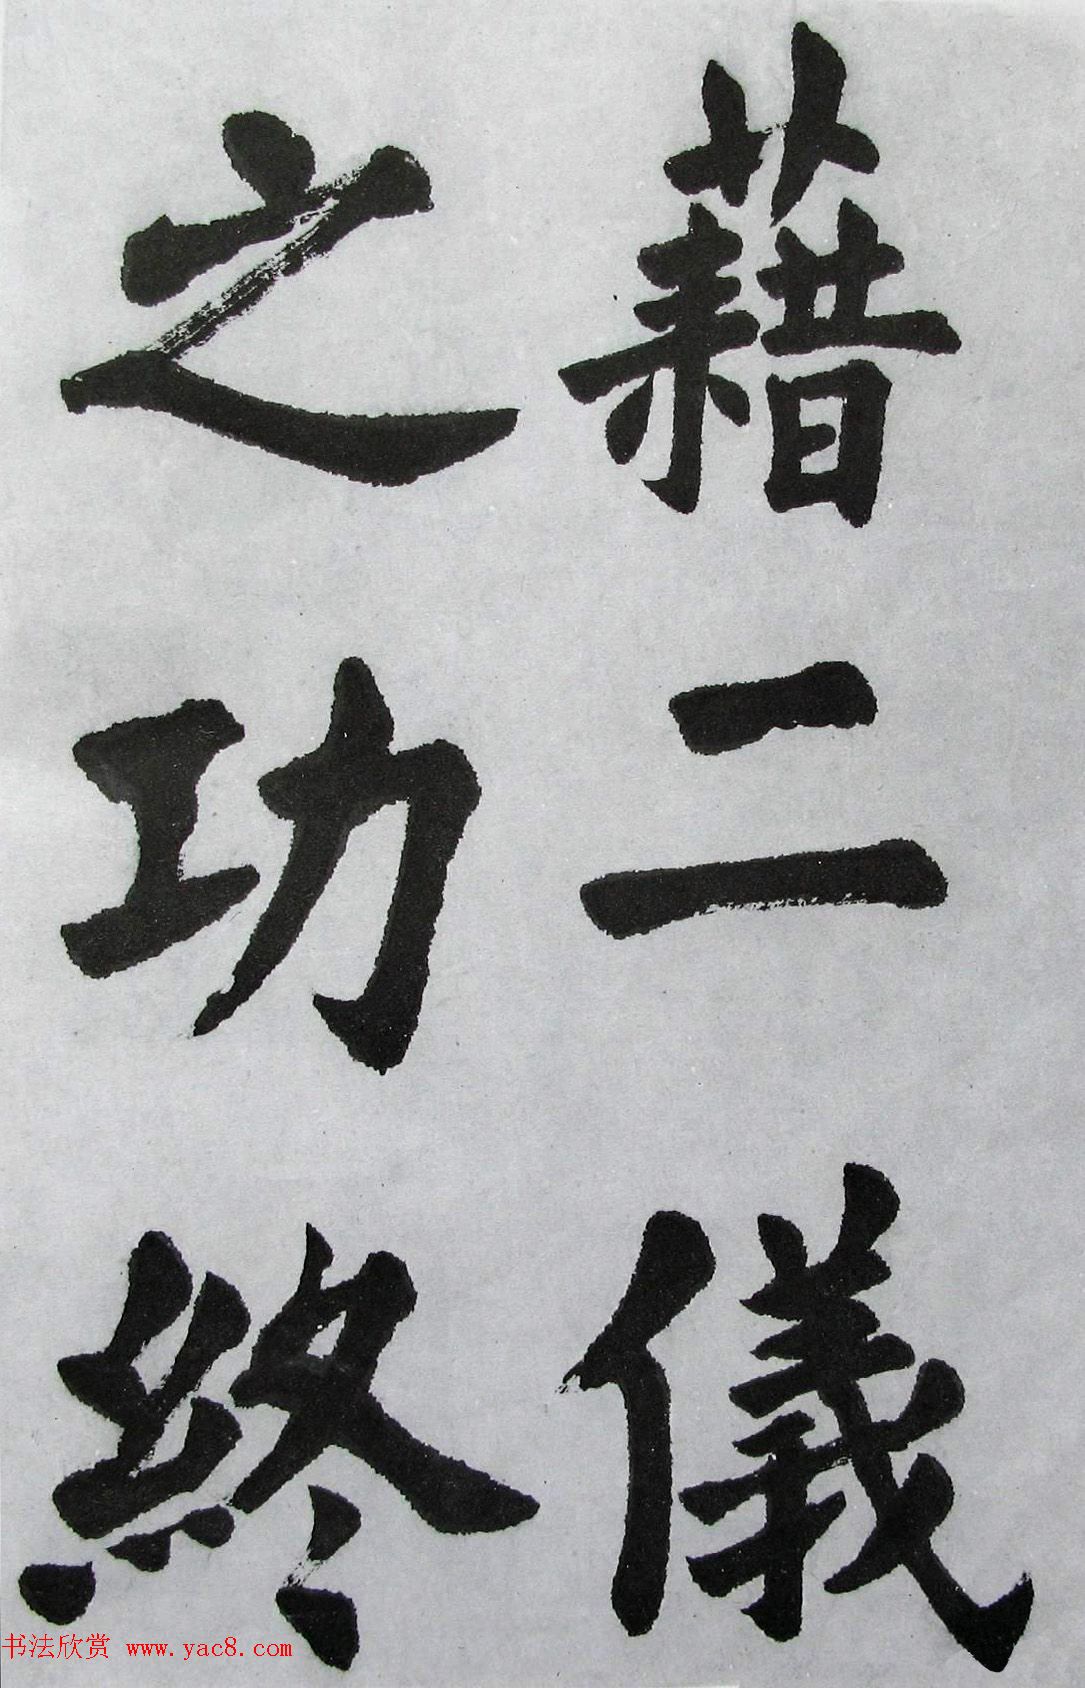 藉二儀
之功終
书法欣赏 www.yac8.com